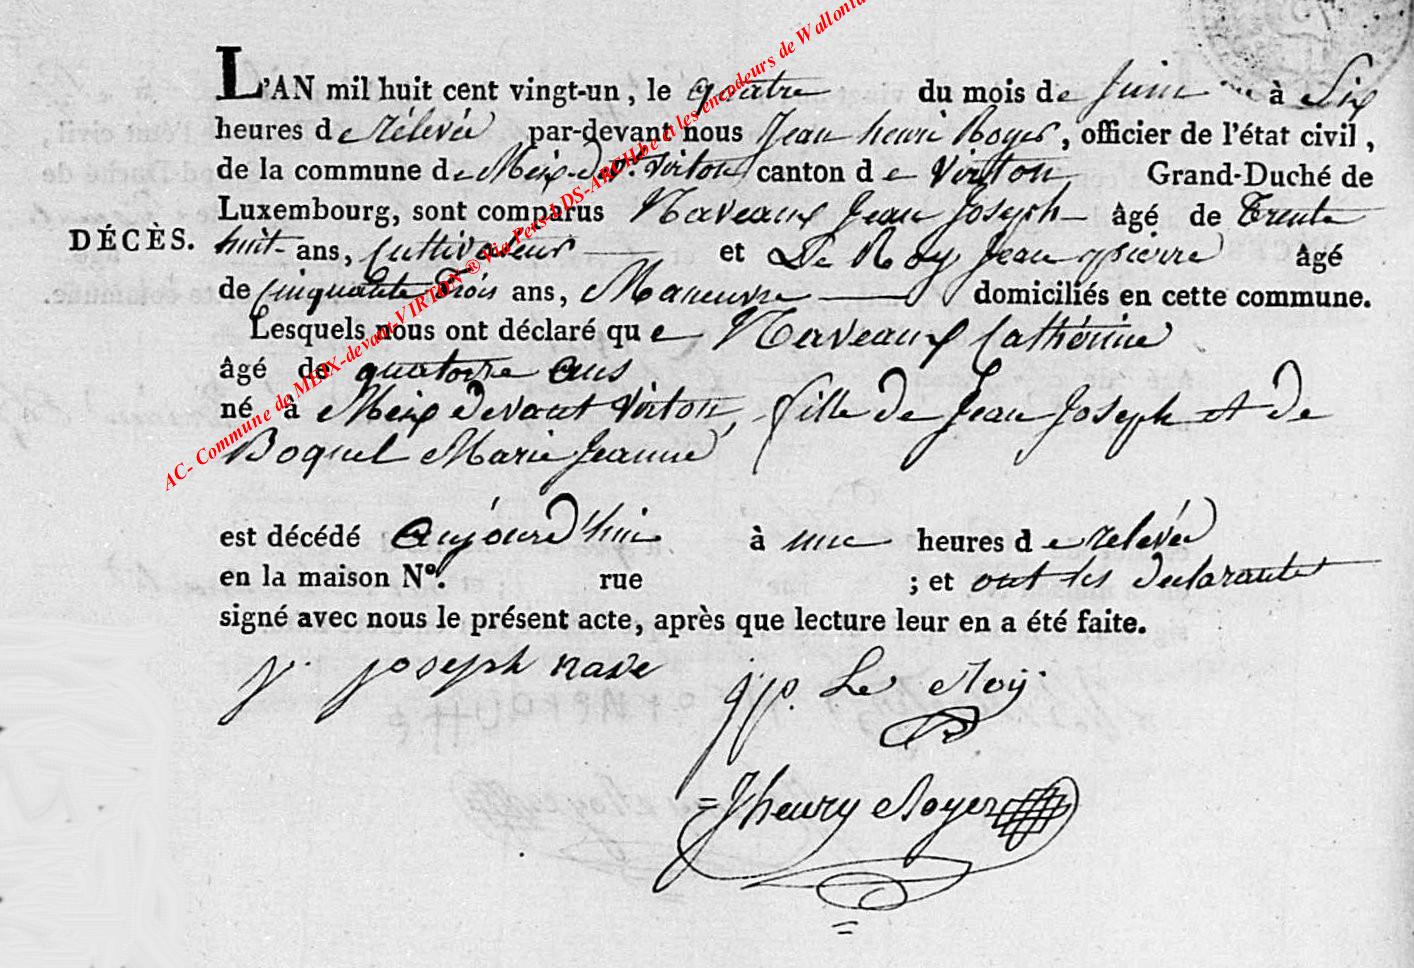 L'AN mil huit cent vingt-un, le quatre du mois de Juin à Six
heures de rélevée par-devant nous Jean henri Royer, officier de l'état civil,
de la commune de Meix-dt. Virton canton de Virton Grand-Duché de
Luxembourg, sont comparus Naveaux Jean Joseph âgé de Trente
DÉCÈS. huit ans, Cultivateur et Le Roy Jean pierre âgé
de Cinquante Trois ans, Maneuvre domiciliés en cette commune.
Lesquels nous ont déclaré que Naveaux Cathérine
âgé de quatorze ans
né à Meix devant Virton, fille de Jean Joseph et de
Boquel Marie Jeanne
est décédé aujourd'hui à une heures de relevée
en la maison N°. rue ; et ont les déclarants
signé avec nous le présent acte, après que lecture leur en a été faite.
j. joseph nave
jp. Le Roy
Jhenry Royer
AC- Commune de MEIX-devant-VIRTON ® Via Pers-LDS-ARCH.be et les encodeurs de Wallonie